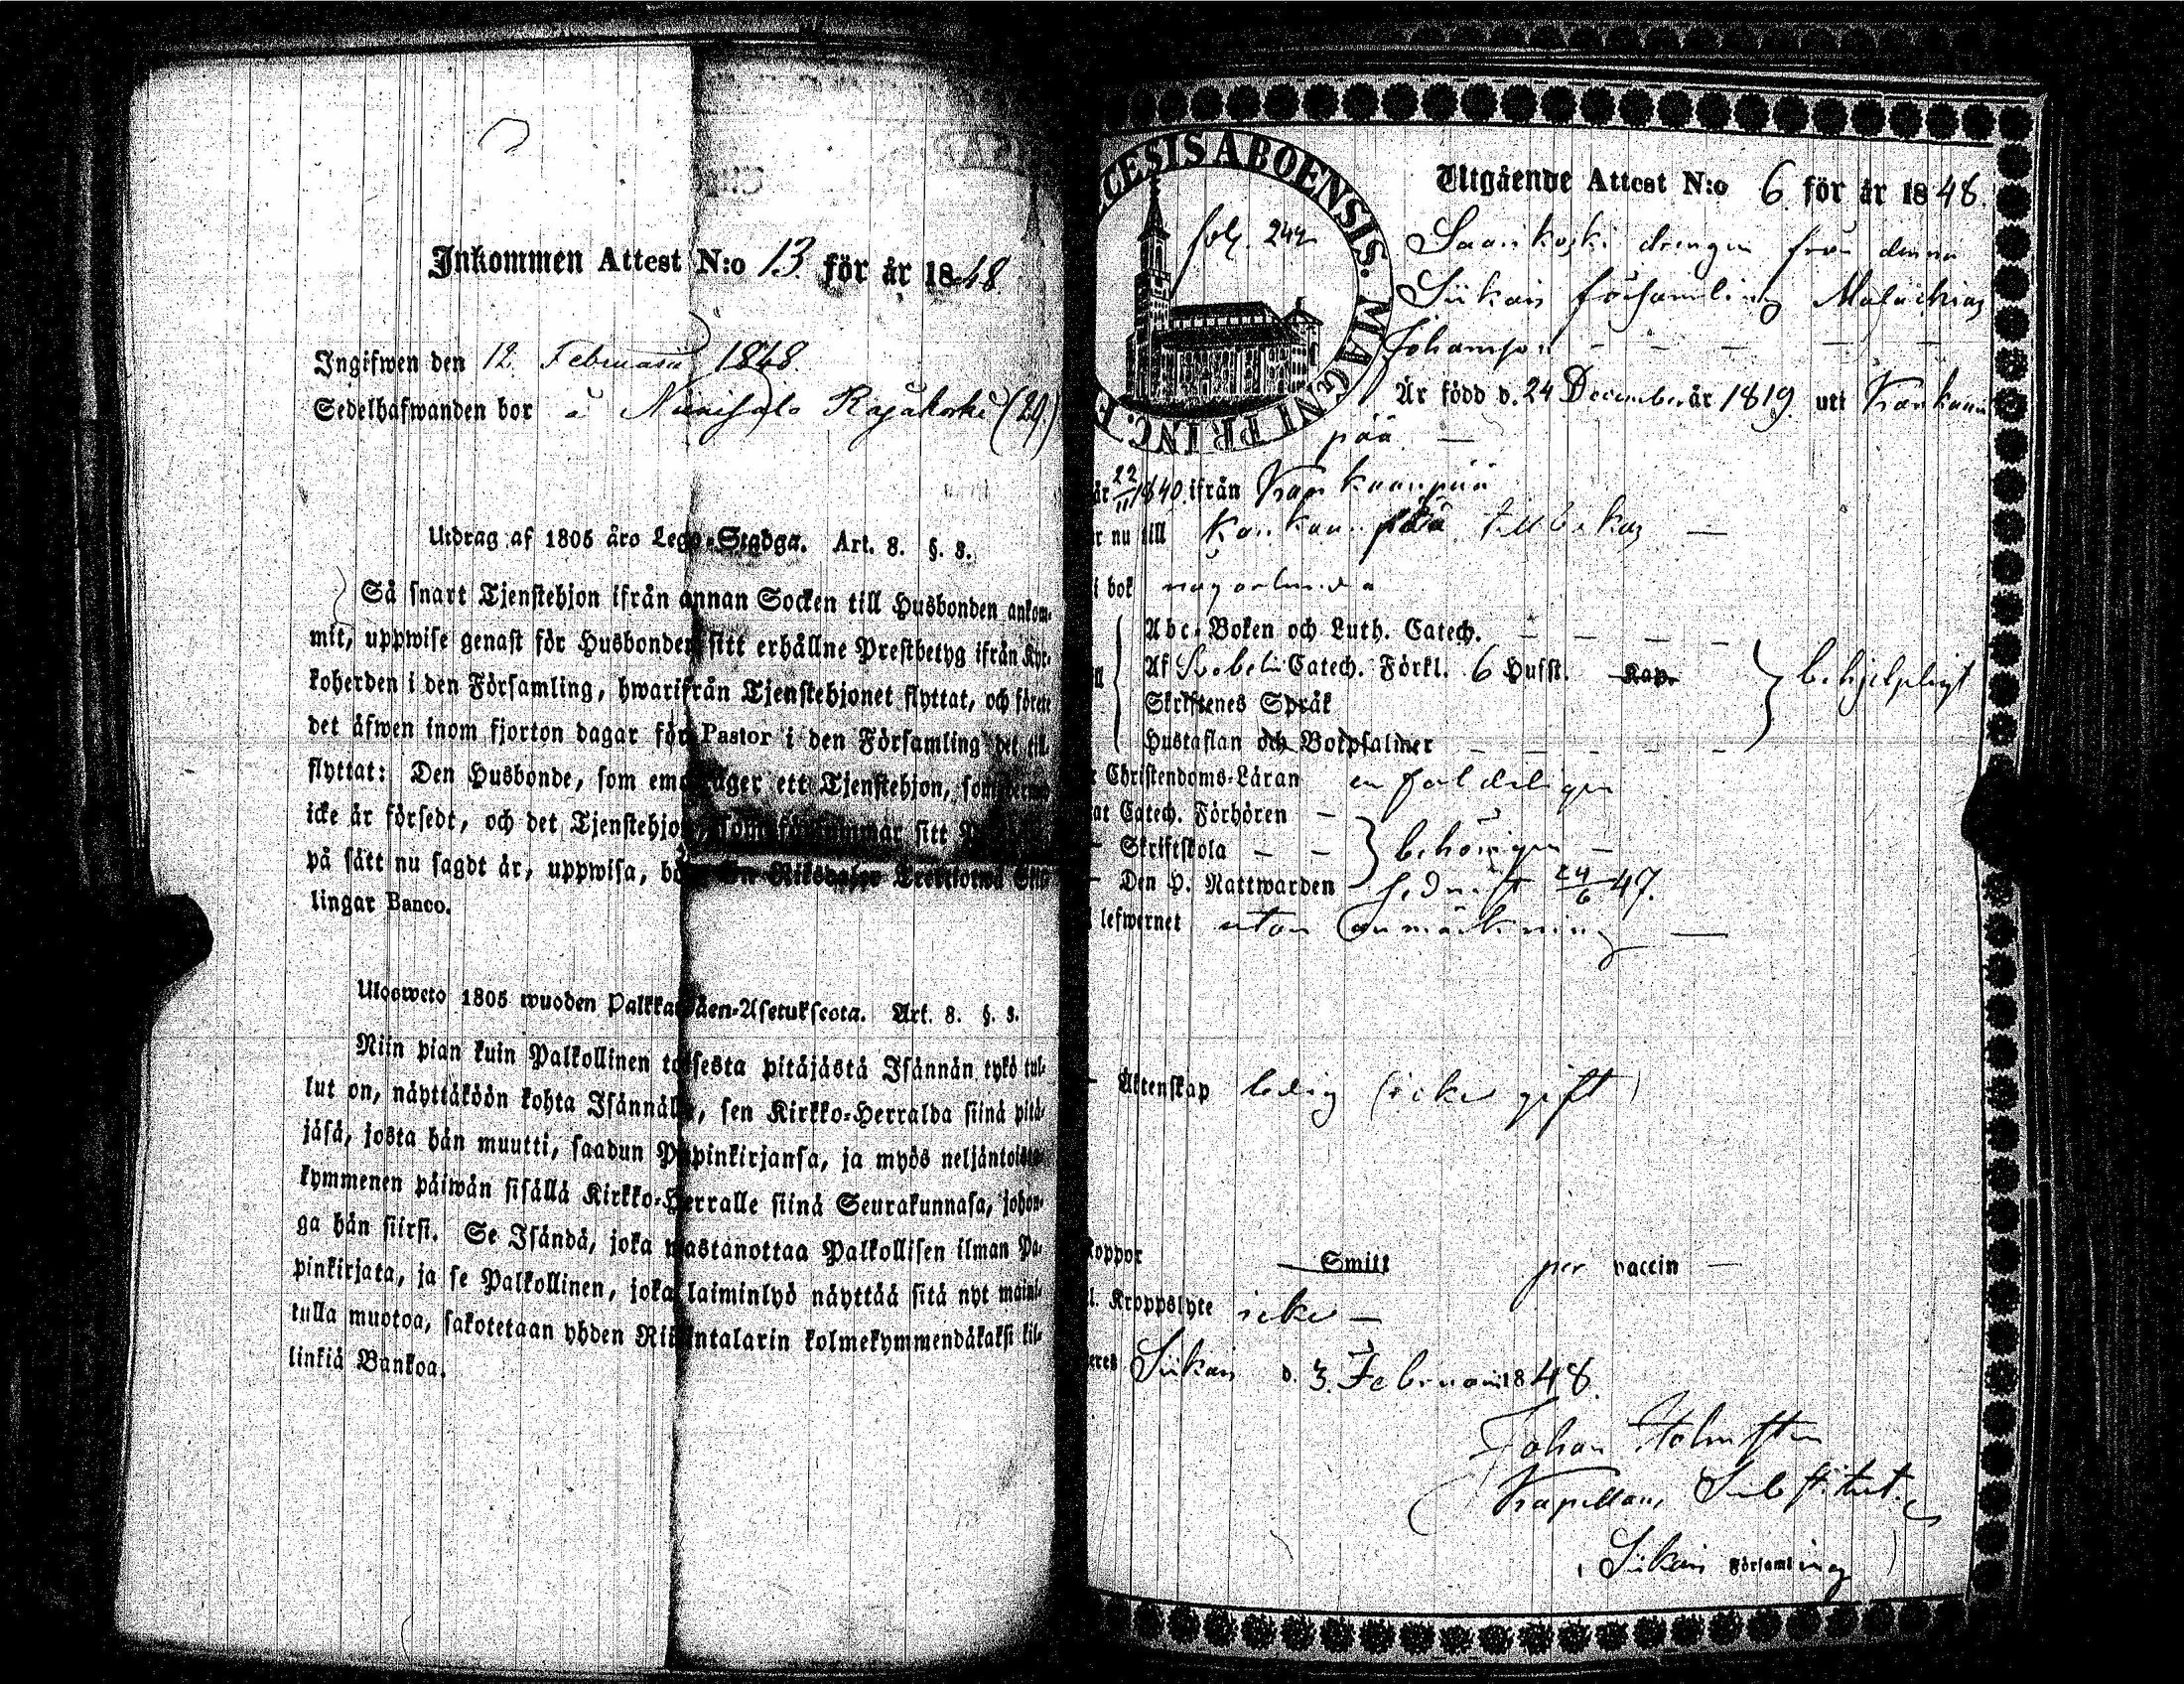 Inkommen Attest N:o 13. för år 1848
Ingifwen den 12 Februarii 1848.
Sedelhafwanden bor å Rajakoski (29.)
Utdrag af 1805 års Lego-Stadga. Art. 8. §. 3.
Så snart Tjenstehjon ifrån annan Socken till Husbonden ankom-
mit, uppwise genast för Husbonden sitt erhållne Prestbetyg ifrån Kyr-
koherden i den Församling, hwarifrån Tjenstehjonet flyttat, och förete
det äfwen inom fjorton dagar för Pastor i den Församling det till-
flyttat: Den Husbonde, som emottager ett Tjenstehjon, som dermed
icke är försedt, och det Tjenstehjon, som försummar sitt
på sätt nu sagdt är, uppwisa, böte En Riksdaler Trettiotwå Skil-
lingar Banco.
Ulosweto 1805 wuoden Palkkawäen-Asetuksesta. Art. 8. §. 3.
Niin pian kuin Palkollinen toisesta pitäjästä Isännän tykö tul-
lut on, näyttäköön kohta Isännälle, sen Kirkko-Herralda siinä pitä-
jäsä, josta hän muutti, saadun Papinkirjansa, ja myös neljäntoista-
kymmenen päiwän sisällä Kirkko-Herralle siinä Seurakunnasa, johon-
ga hän siirsi. Se Isändä, joka wastanottaa Palkollisen ilman Pa-
pinkirjata, ja se Palkollinen, joka laiminlyö näyttää sitä nyt maini-
tulla muotoa, sakotetaan yhden Riikintalarin kolmekymmendäkaksi kil-
linkiä Bankoa.
CESIS ABOENSIS. MAGNI PRINC. F
fol. 242
Utgående Attest N:o 6 för år 1848.
Saarikoski drengen från denna
Siikais församling Malachias
Johansson
Är född d. 24 December år 1819. uti Kankaan
pää
år 22/11 1840. ifrån Kankaanpää
r nu till Kankaanpää tillbakas
i bok någorlunda
Abc-Boken och Luth. Catech.
Af Svebelii Catech. Förkl. 6 Hufst. Kap.
Skriftenes Språk
Hustaflan och Botpsalmer
behjelpligt
Christendoms-Läran enfaldeligen
at Catech. Förhören
Skriftskola
behörigen
Den H. Nattwarden sednast 24/6 47.
lefwernet utan anmärkning
Äktenskap ledig (icke gift)
Koppor Smitt per vaccin
l. Kroppslyte icke
eres Siikais d. 3. Februarii 1848.
Johan Holmsten
Kapellans Substitut.
i Siikais Församling